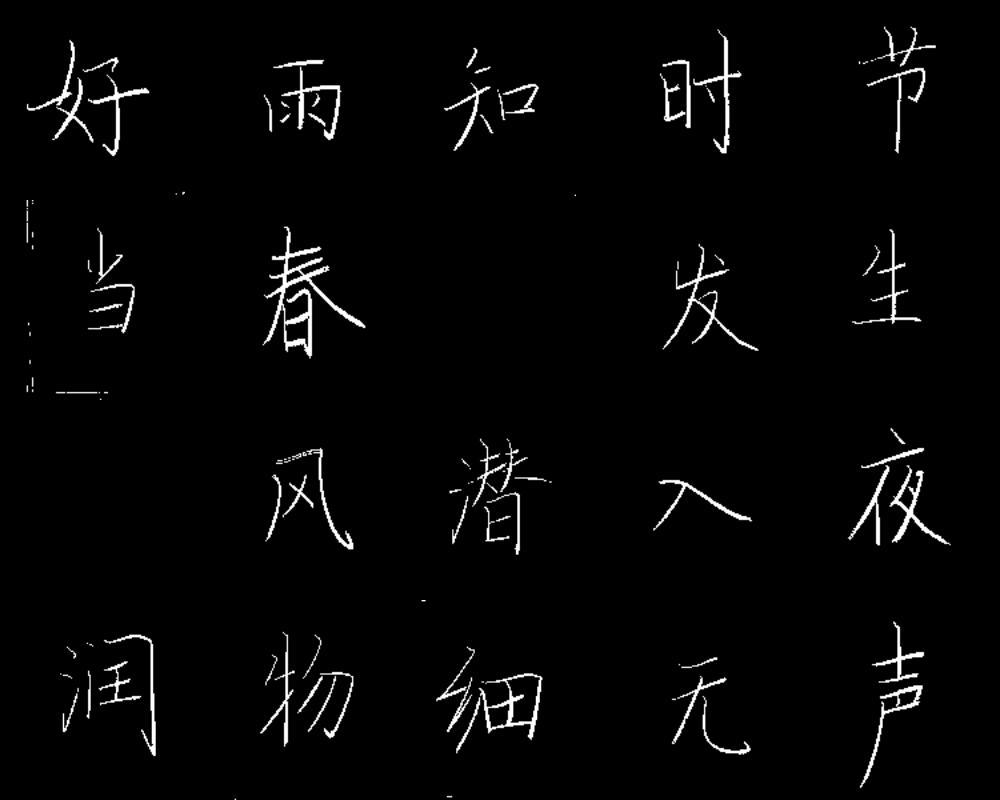 好雨知时节
当春发生
风潜入夜
润物细无声